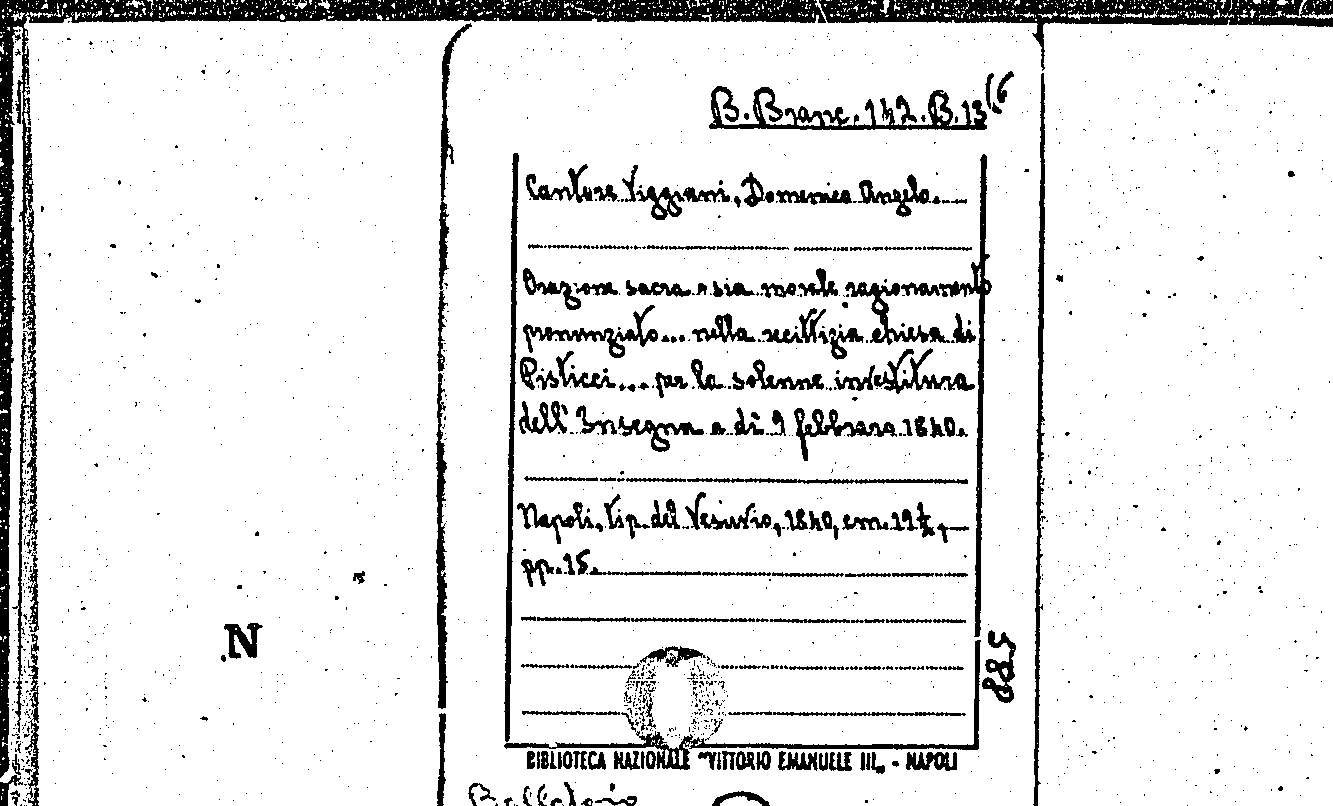 B. Branc. 142. B. 13(6
Cantore Viggiani, Domenico Angelo.
Orazione sacra o sia morale ragionamento
pronunziato... nella recittizia chiesa di
Pisticci... per la solenne investitura
dell'Insegna a dì 9 febbraro 1840.
Napoli, tip. del Vesuvio, 1840, cm. 19½,
pp. 15.
N
885
BIBLIOTECA NAZIONALE "VITTORIO EMANUELE III„ - NAPOLI